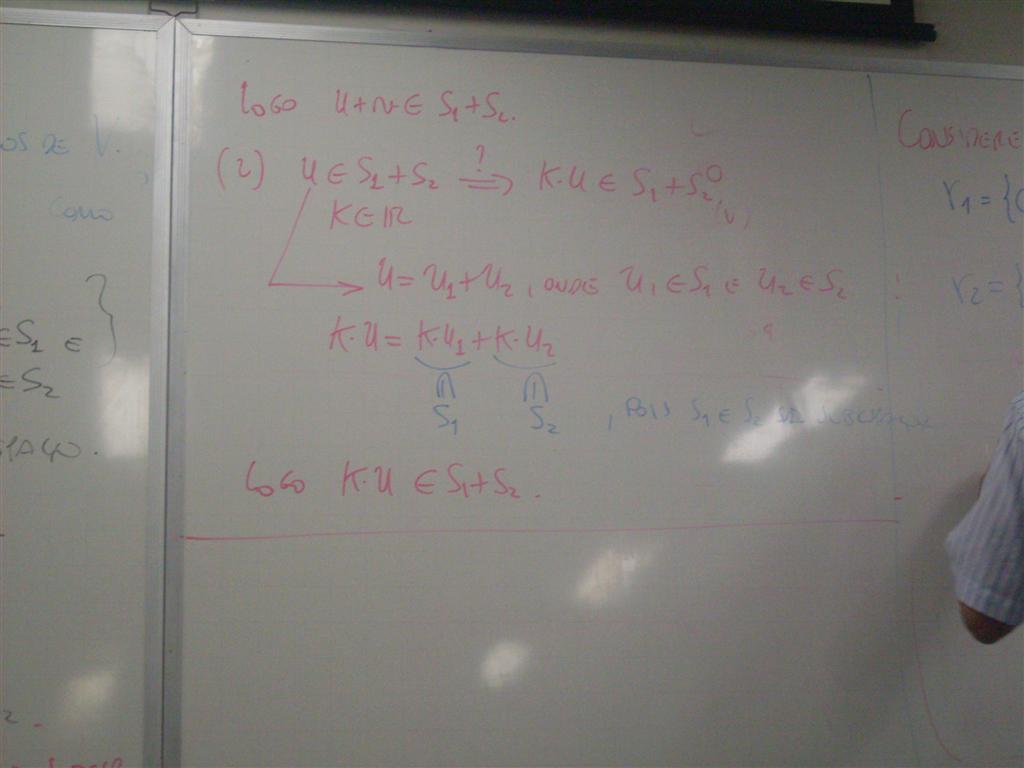 OS DE V.
COMO
∈S1 E
∈S2
PAÇO.
LOGO U+V ∈ S1+S2.
(2) U ∈ S1+S2 ?⟹ K·U ∈ S1+S2
K∈IR
U = U1+U2, ONDE U1 ∈ S1 E U2 ∈ S2
K·U = K·U1+K·U2
S1 S2 , POIS S1 E S2
LOGO K·U ∈ S1+S2.
CONSIDERE
r1 = {
r2 = {